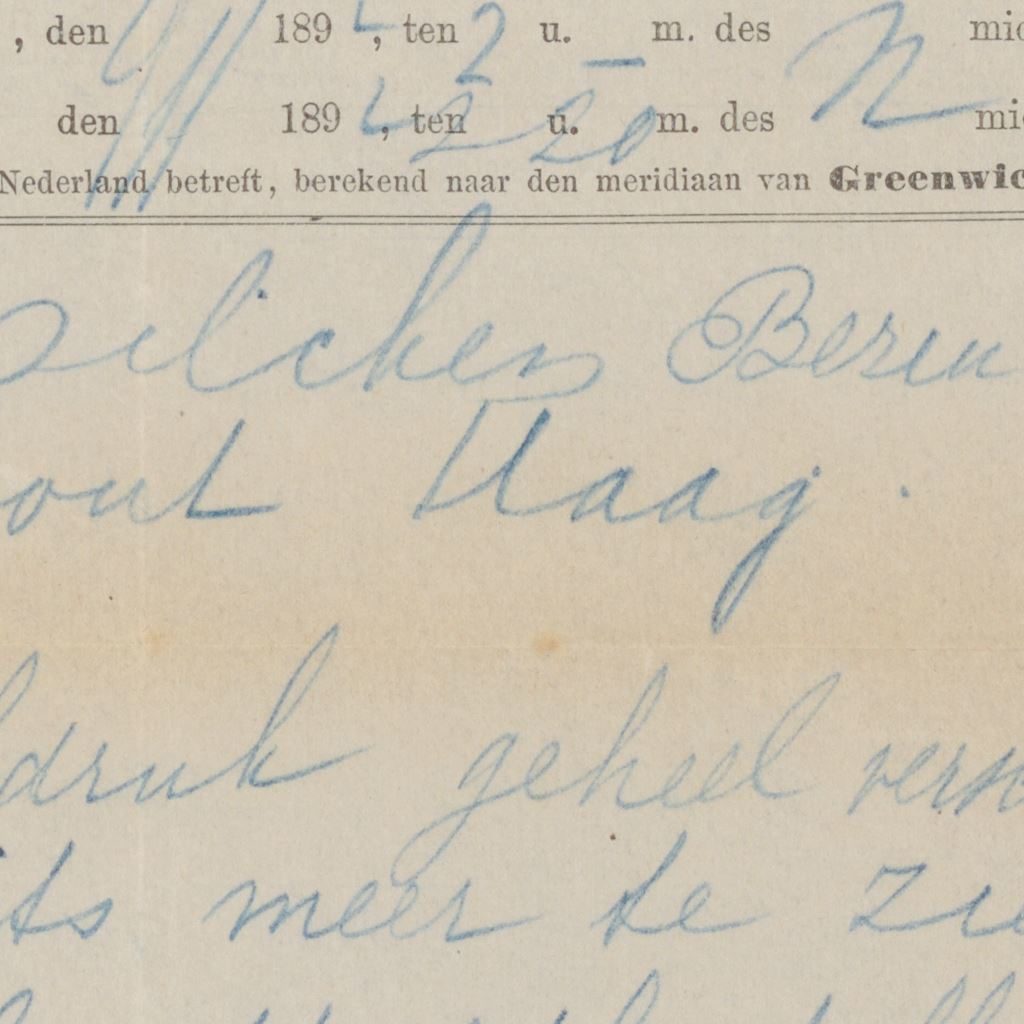 , den 189 , ten 2 u. — m. des N mi
den 189 , ten 2 u. 20 m. des N mi
Nederland betreft, berekend naar den meridiaan van Greenwic
Beren
out Haag .
druk geheel vers
ts meer te zie